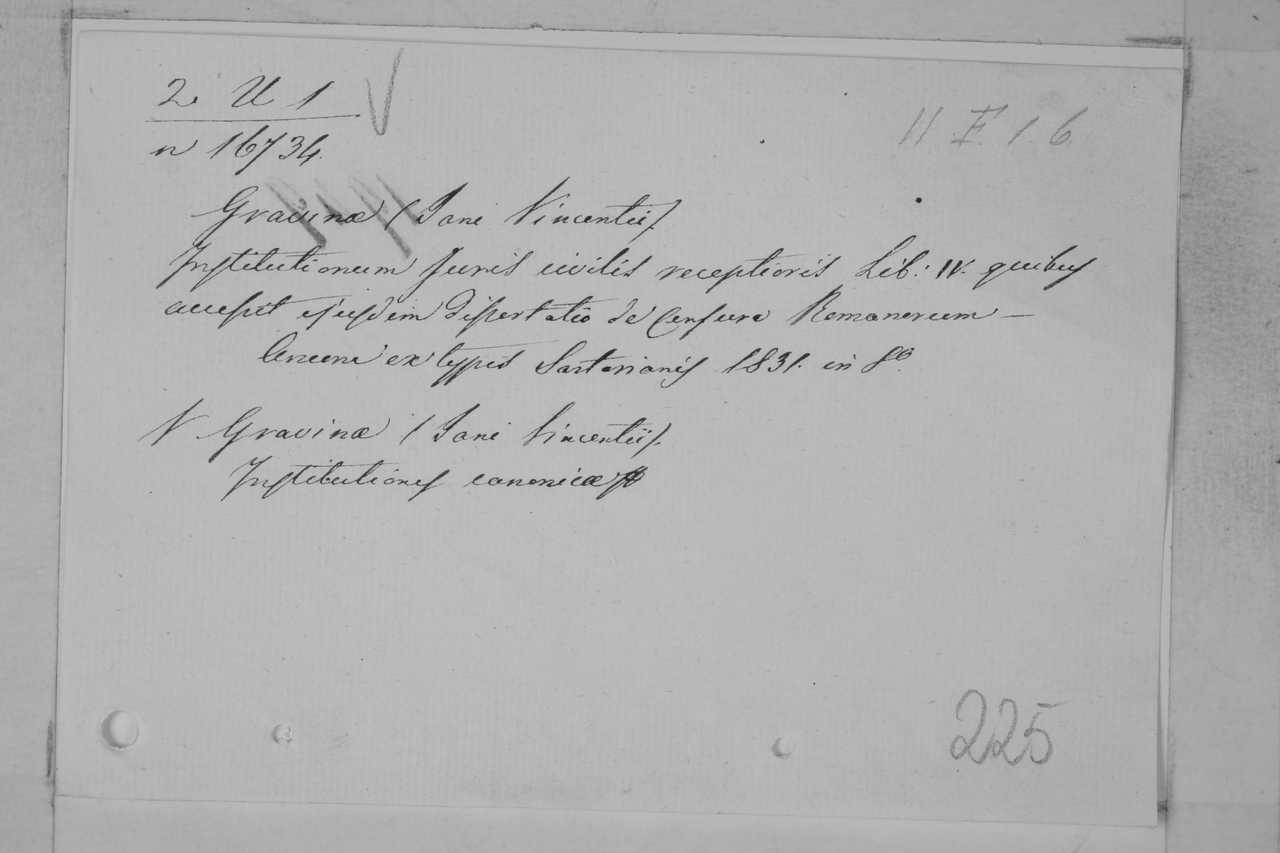 2. U 1 V
II F. 1. 6.
n 16734.
Gravinæ (Jani Vincentii).
Institutionum Juris civilis receptioris Lib: IV. quibus
accessit ejusdem Dissertatio de Censura Romanorum —
ex typis Sartorianis 1831. in 8º.
N Gravinæ (Jani Vincentii).
Institutiones canonicæ
225